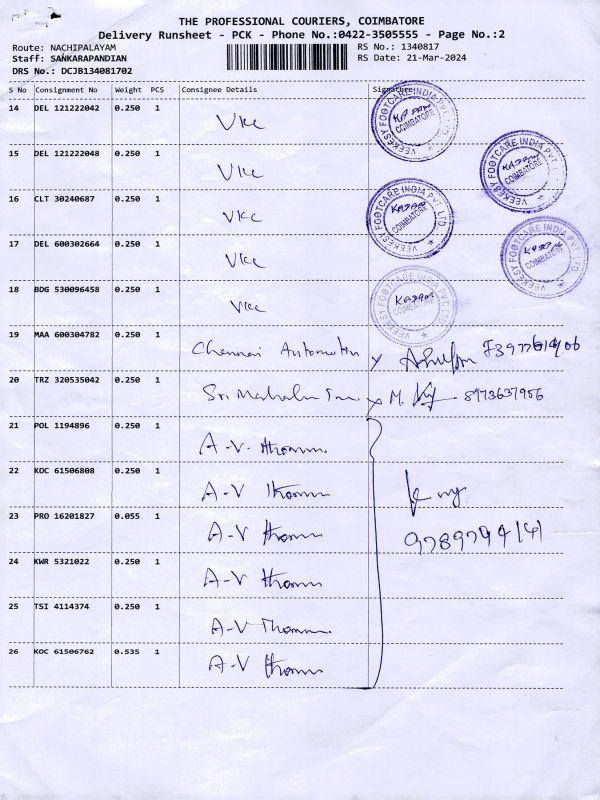 THE PROFESSIONAL COURIERS, COIMBATORE
Delivery Runsheet - PCK - Phone No.:0422-3505555 - Page No.:2
Route: NACHIPALAYAM
RS No.: 1340817
Staff: SANKARAPANDIAN
RS Date: 21-Mar-2024
DRS No.: DCJB134081702
S No Consignment No Weight PCS Consignee Details Signature
14 DEL 121222042 0.250 1 VKC
VEEKESY FOOTCARE INDIA PVT LTD COIMBATORE
15 DEL 121222048 0.250 1 VKC
VEEKESY FOOTCARE INDIA PVT LTD COIMBATORE
16 CLT 30240687 0.250 1 VKC
VEEKESY FOOTCARE INDIA PVT LTD COIMBATORE
17 DEL 600302664 0.250 1 VKC
VEEKESY FOOTCARE INDIA PVT LTD COIMBATORE
18 BDG 530096458 0.250 1 VKC
VEEKESY FOOTCARE INDIA PVT LTD
19 MAA 600304782 0.250 1 Chennai Automation x
20 TRZ 320535042 0.250 1 Sri x M. 8973637956
21 POL 1194896 0.250 1 A-V- Thomas
22 KOC 61506808 0.250 1 A-V Thomas
23 PRO 16201827 0.055 1 A-V Thomas
24 KWR 5321022 0.250 1 A-V Thomas
25 TSI 4114374 0.250 1 A-V Thomas
26 KOC 61506762 0.535 1 A-V Thomas